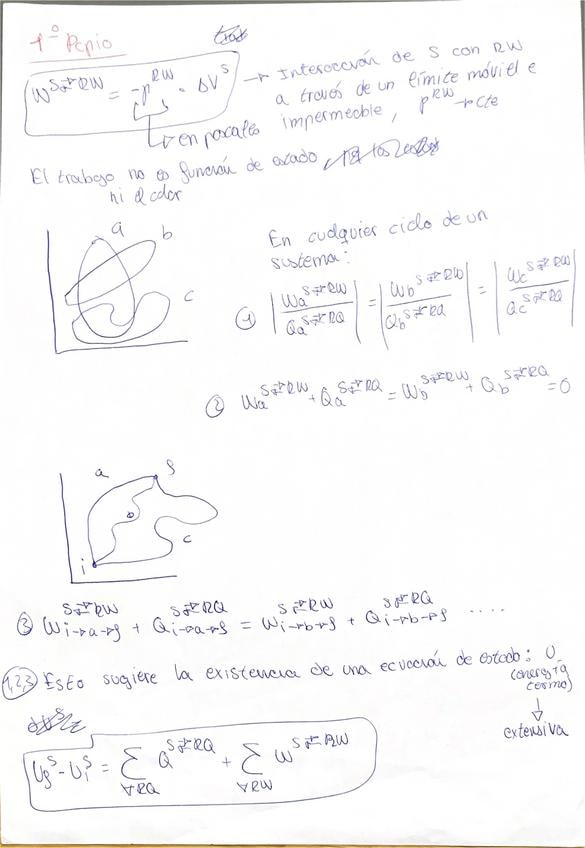 1º Ppio
W^{S⇄RW} = -p^{RW} · ΔV^S → Interacción de S con RW
a través de un límite móvil e
impermeable, p^{RW} → cte
↳ en pascales
El trabajo no es función de estado
ni el calor
a
b
c
En cualquier ciclo de un
sistema:
① |Wa^{S⇄RW} / Qa^{S⇄RQ}| = |Wb^{S⇄RW} / Qb^{S⇄RQ}| = |Wc^{S⇄RW} / Qc^{S⇄RQ}|
② Wa^{S⇄RW} + Qa^{S⇄RQ} = Wb^{S⇄RW} + Qb^{S⇄RQ} = 0
a
f
b
c
i
③ W_{i→a→f}^{S⇄RW} + Q_{i→a→f}^{S⇄RQ} = W_{i→b→f}^{S⇄RW} + Q_{i→b→f}^{S⇄RQ} ....
1,2,3 Esto sugiere la existencia de una ecuación de estado: U
(energía
termo)
↓
extensiva
U_f^S - U_i^S = Σ_{∀RQ} Q^{S⇄RQ} + Σ_{∀RW} W^{S⇄RW}